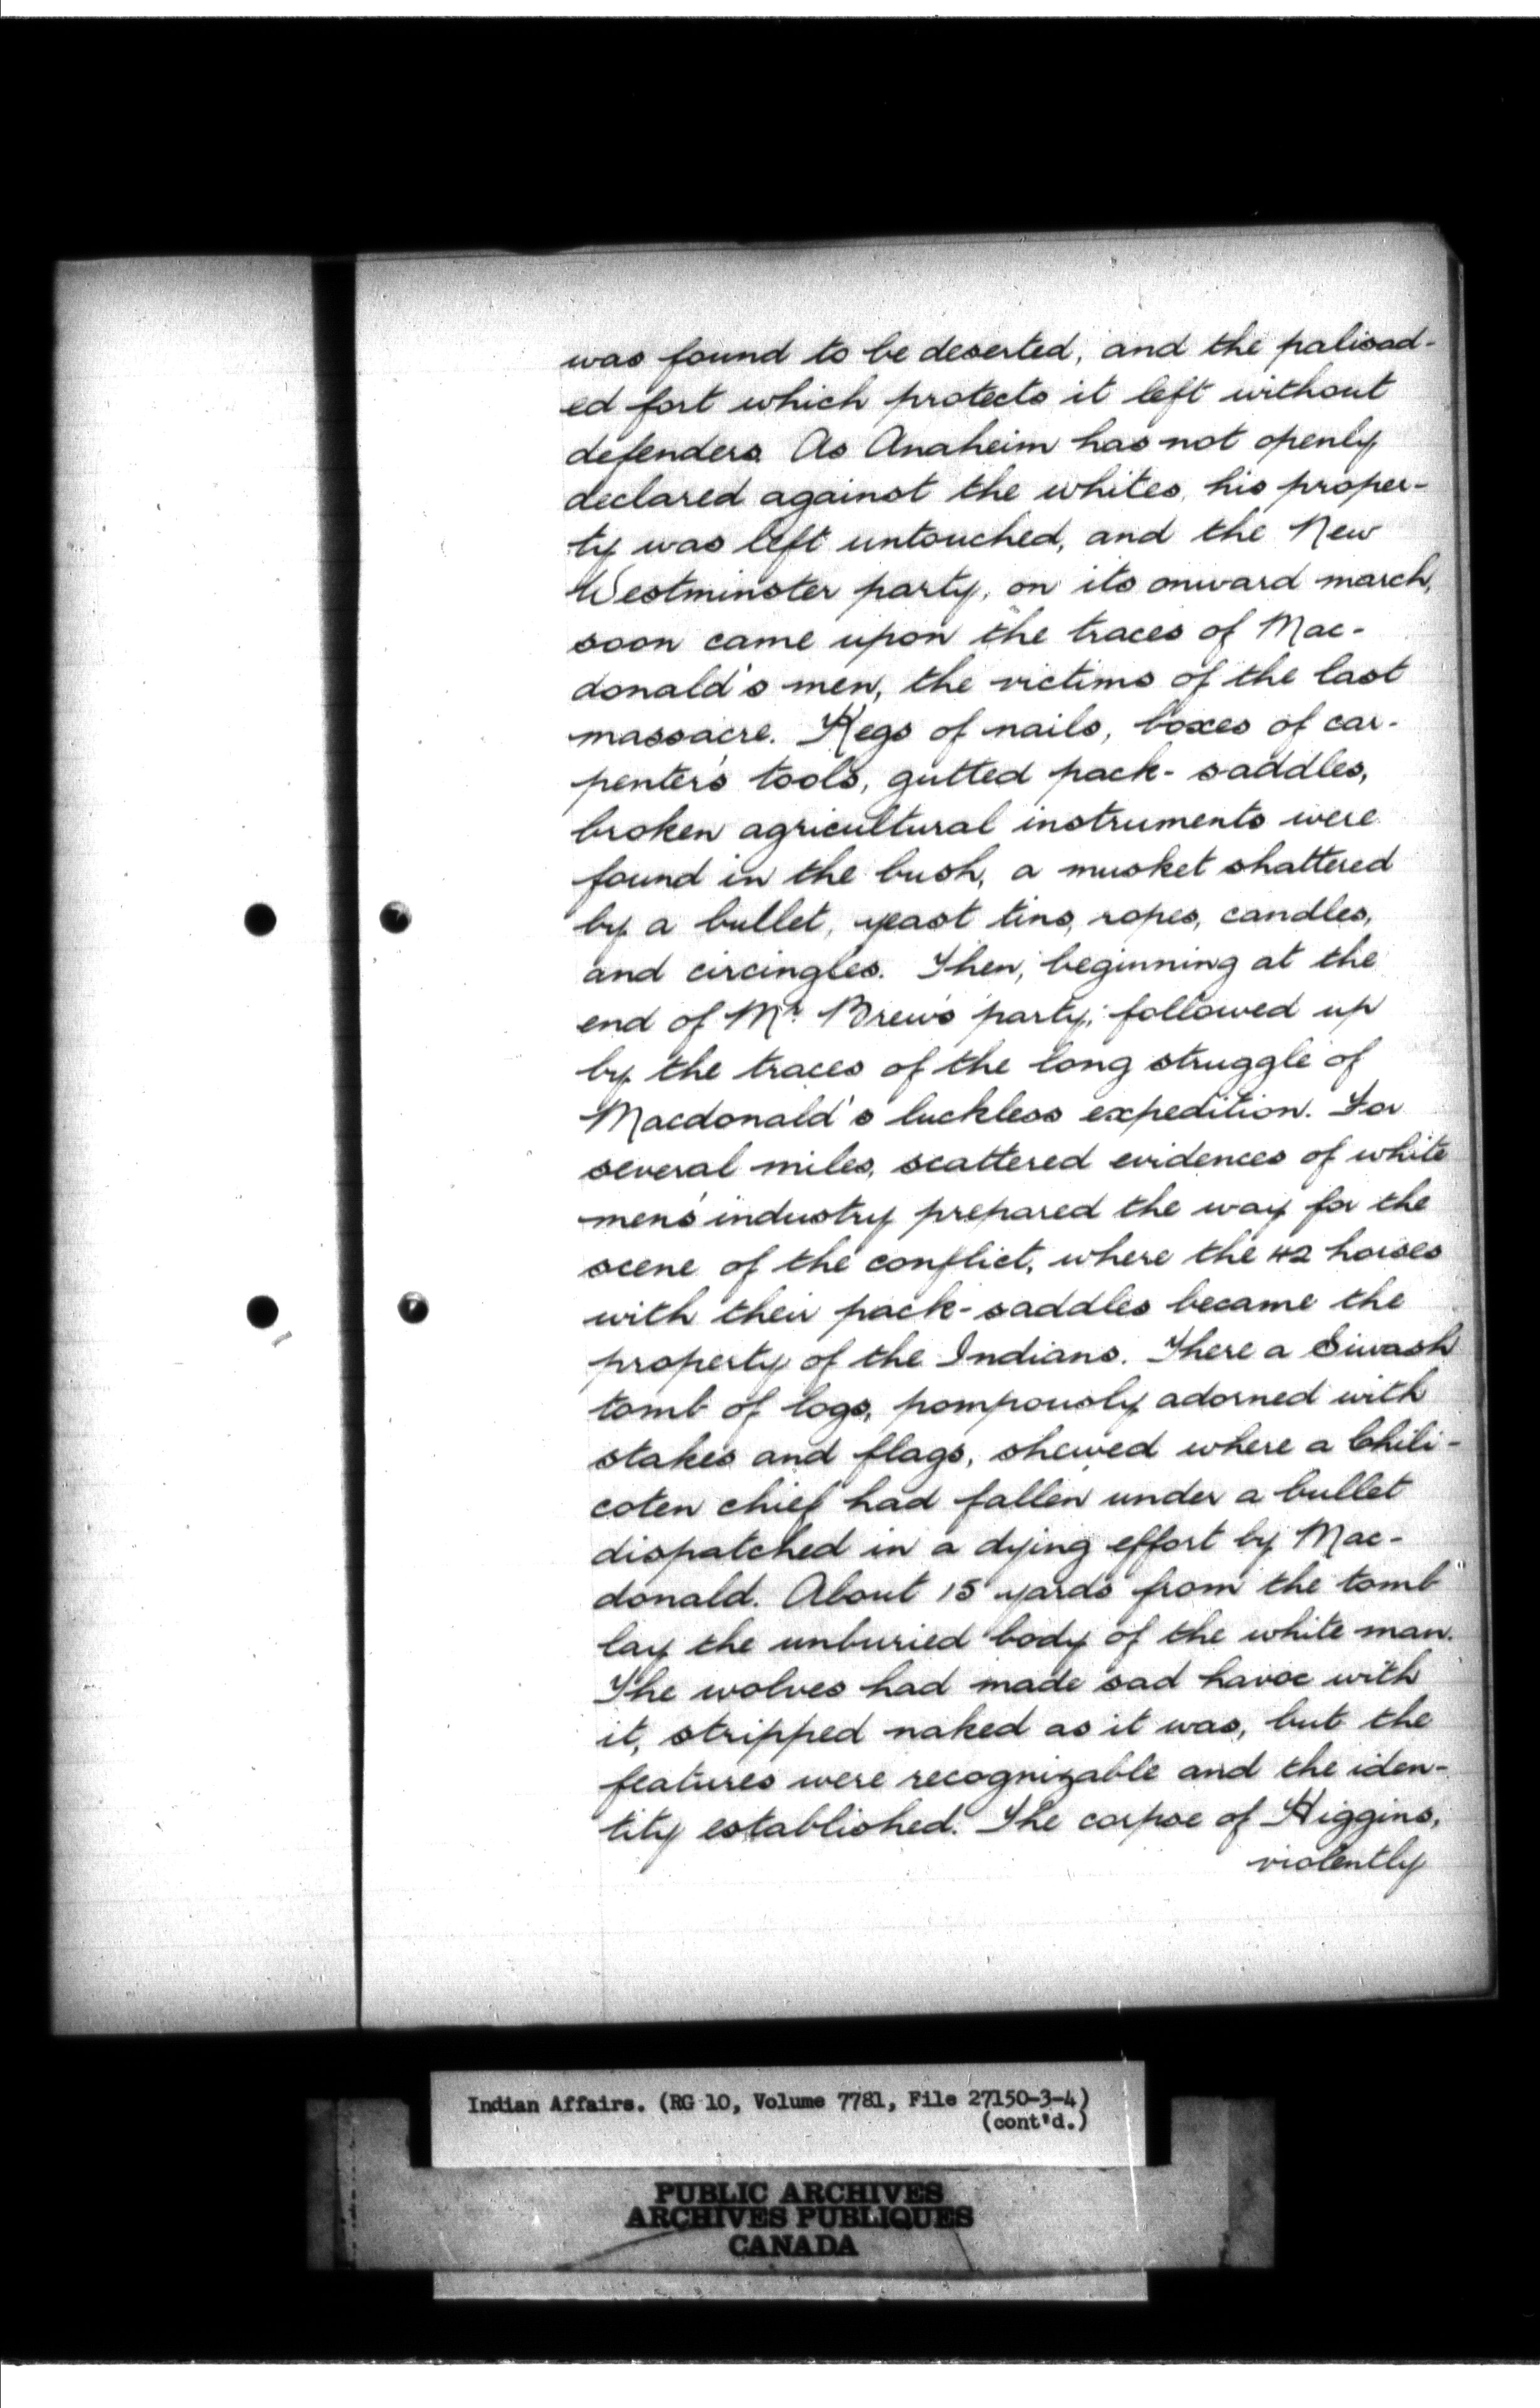 was found to be deserted, and the palisad-
ed fort which protects it left without
defenders. As Anaheim has not openly
declared against the whites, his proper-
ty was left untouched, and the New
Westminster party, on its onward march,
soon came upon the traces of Mac-
donald's men, the victims of the last
massacre. Kegs of nails, boxes of car-
penter's tools, gutted pack-saddles,
broken agricultural instruments were
found in the bush, a musket shattered
by a bullet, yeast tins, ropes, candles,
and circingles. Then, beginning at the
end of Mr. Brew's party, followed up
by the traces of the long struggle of
Macdonald's luckless expedition. For
several miles, scattered evidences of white
men's industry prepared the way for the
scene of the conflict, where the 42 horses
with their pack-saddles became the
property of the Indians. There a Siwash
tomb of logs, pompously adorned with
stakes and flags, shewed where a Chili-
coten chief had fallen under a bullet
dispatched in a dying effort by Mac-
donald. About 15 yards from the tomb
lay the unburied body of the white man.
The wolves had made sad havoc with
it, stripped naked as it was, but the
features were recognizable and the iden-
tity established. The corpse of Higgins,
violently
Indian Affairs. (RG 10, Volume 7781, File 27150-3-4)
(cont'd.)
PUBLIC ARCHIVES
ARCHIVES PUBLIQUES
CANADA